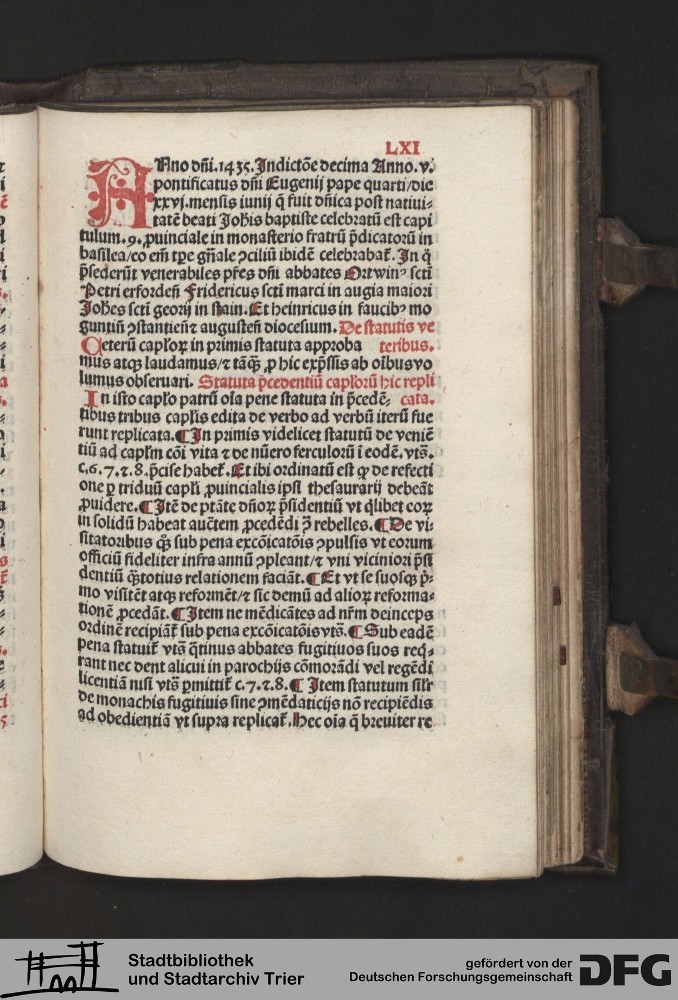 LXI
ANno dñi.1435.Indictõe decima Anno.v.
pontificatus dñi Eugenij pape quarti/die
xxvj.mensis iunij q̃ fuit dñica post natiui⸗
tatẽ beati Joh̃is baptiste celebratũ est capi
tulum.9.ꝓuinciale in monasterio fratrũ p̃dicatorũ in
basilea/eo em̃ tꝑe gñale ꝯciliũ ibidẽ celebrabat̃.In q̃
p̃sederũt venerabiles pr̃es dñi abbates Ortwinꝰ scti
Petri erforden̄ Fridericus scti marci in augia maiori
Joh̃es scti georij in stain.Et heinricus in faucibꝰ mo
guntiñ ꝯstantien̄ ⁊ augusten̄ diocesium. De statutis ve
Ceterũ capl̃oꝝ in primis statuta approba teribus.
mus atqꝫ laudamus/⁊ tãq̃ꝫ ꝓ hic exp̃ssis ab oĩbus vo
lumus obseruari. Statuta p̃cedentiũ capl̃orũ hic repli
In isto capl̃o patrũ oĩa pene statuta in p̃cedẽ⸗ cata.
tibus tribus capl̃is edita de verbo ad verbũ iterũ fue
runt replicata.¶In primis videlicet statutũ de veniẽ
tiũ ad capl̃m cõi vita ⁊ de nũero ferculorũ i eodẽ.vts̃.
c.6.7.⁊.8.p̃cise habet̃.Et ibi ordinatũ est ꝙ de refecti
one ꝑ triduũ capl̃i ꝓuincialis ipsi thesaurarij debeãt
ꝓuidere.¶Itẽ de ptãte dñoꝝ p̃sidentiũ vt q̃libet eoꝝ
in solidũ habeat auct̃em ꝓcedẽdi ꝯ̃ rebelles.¶De vi⸗
sitatoribus q̃ꝫ sub pena excõicatõis ꝯpulsis vt eorum
officiũ fideliter infra annũ ꝯpleant/⁊ vni viciniori p̃si
dentiũ q̃ꝫtotius relationem faciãt.¶Et vt se suosqꝫ p̃⸗
mo visitẽt atqꝫ reformẽt/⁊ sic demũ ad alioꝝ reforma⸗
tionẽ ꝓcedãt.¶Item ne mẽdicãtes ad nr̃m deinceps
ordinẽ recipiãt̃ sub pena excõicatõis vts̃.¶Sub eadẽ
pena statuit̃ vts̃ q̃tinus abbates fugitiuos suos req̃⸗
rant nec dent alicui in parochijs cõmorãdi vel regẽdi
licentiã nisi vts̃ ꝑmittit̃ c.7.⁊.8.¶ Item statutum sil̃r
de monachis fugitiuis sine ꝯmẽdaticijs nõ recipiẽdis
ad obedientiã vt supra replicat̃.Hec oĩa q̃ breuiter re
Stadtbibliothek
und Stadtarchiv Trier
gefördert von der
Deutschen Forschungsgemeinschaft
DFG